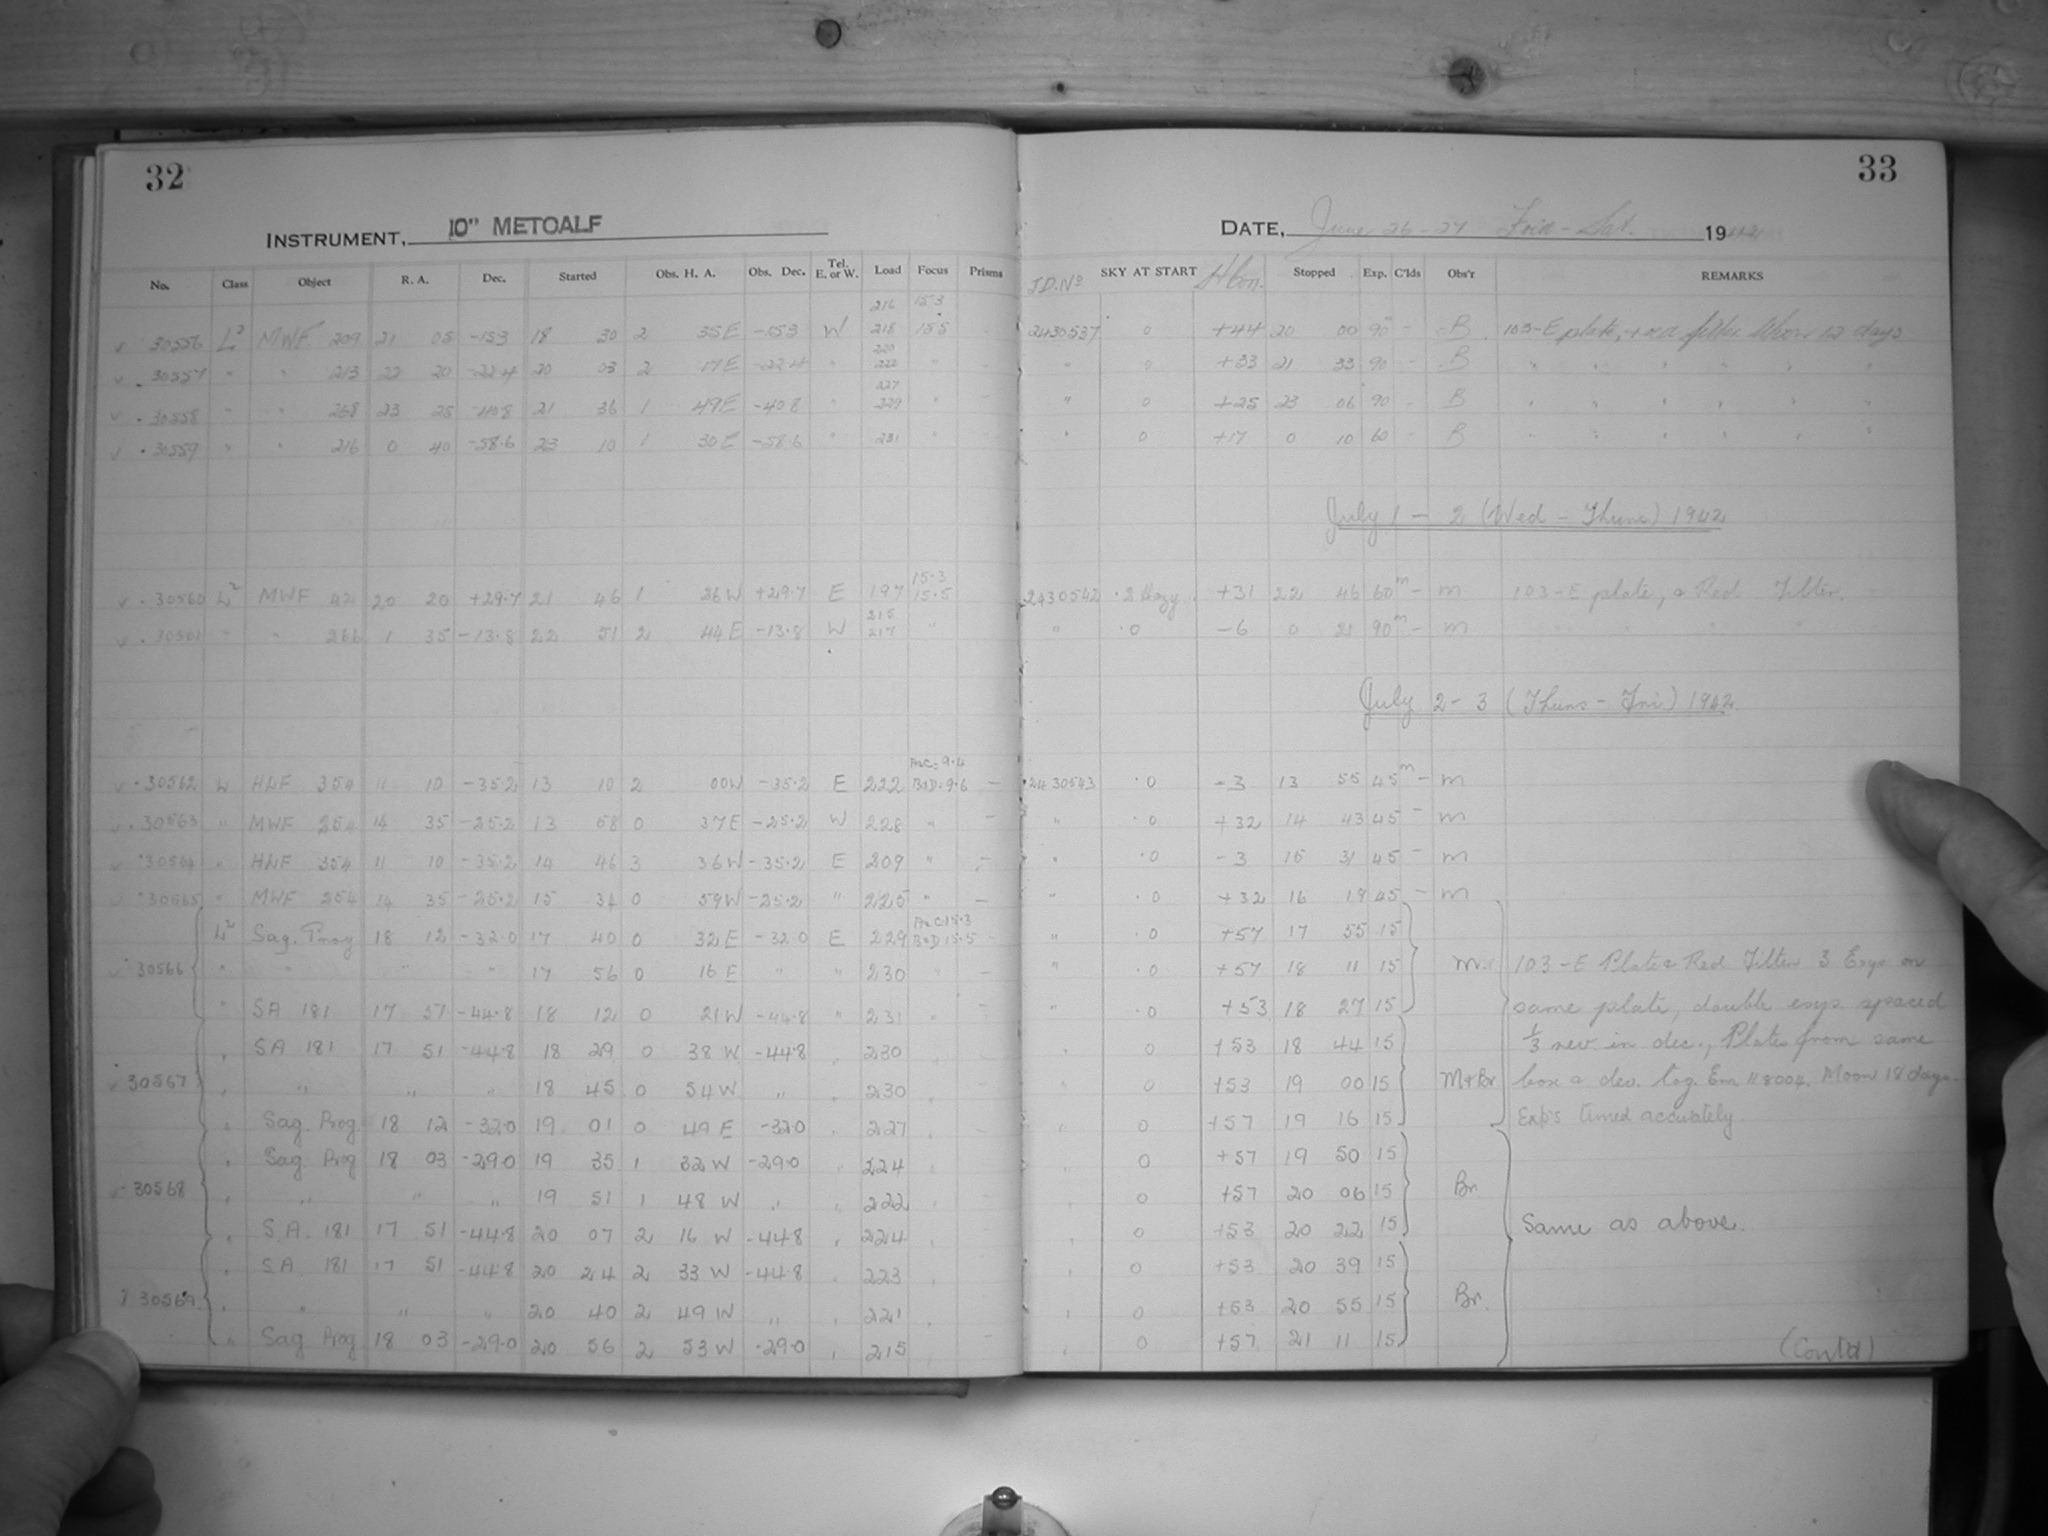 32
33
INSTRUMENT, 10" METCALF
DATE, June 26-27 Frid - Sat. 1942
No. Class Object R. A. Dec. Started Obs. H. A. Obs. Dec. Tel. E. or W. Load Focus Prisms J.D. No SKY AT START Stopped Exp. C'lds Obs'r REMARKS
216 15.3
30556 L2 MWF 209 21 05 -15.3 18 30 2 35 E -15.3 W 218 15.5 2430537 0 +44 20 00 90m - B 103-E plate, + red filter Moon 12 days
220
30557 " " 213 22 20 -22.4 20 03 2 17 E -22.4 " 222 " " 0 +33 21 33 90 - B " " " " " " "
227
30558 " " 268 23 25 -40.8 21 36 1 49 E -40.8 " 229 " " 0 +25 23 06 90 - B " " " " " " "
30559 " " 216 0 40 -58.6 23 10 1 30 E -58.6 " 231 " " 0 +17 0 10 60 - B " " " " " " "
July 1 - 2 (Wed - Thurs) 1942
15.3
30560 L2 MWF 20 20 +29.7 21 46 1 26 W +29.7 E 197 15.5 2430542 .2 Hazy +31 22 46 60m - m 103-E plate, & Red Filter.
215
30561 " " 266 1 35 -13.8 22 51 2 44 E -13.8 W 217 " " .0 -6 0 21 90m - m " " " "
July 2 - 3 (Thurs - Fri) 1942
A&C. 9.4
30562 L HLF 354 11 10 -35.2 13 10 2 00 W -35.2 E 222 B&D. 9.6 - 2430543 .0 -3 13 55 45m - m
30563 " MWF 254 14 35 -25.2 13 58 0 37 E -25.2 W 228 " - " .0 +32 14 43 45 - m
30564 " HLF 354 11 10 -35.2 14 46 3 36 W -35.2 E 209 " - " .0 -3 15 31 45 - m
30565 " MWF 254 14 35 -25.2 15 34 0 59 W -25.2 " 225 " - " .0 +32 16 19 45 - m
A&C 15.3
L2 Sag. Prog 18 12 -32.0 17 40 0 32 E -32.0 E 229 B&D 15.5 - " .0 +57 17 55 15
30566 " " " " 17 56 0 16 E " " 230 " - " .0 +57 18 11 15 m. 103-E Plate & Red Filter 3 Exps on
" SA 181 17 51 -44.8 18 12 0 21 W -44.8 " 231 " - " .0 +53 18 27 15 same plate, double exps spaced
" SA 181 17 51 -44.8 18 29 0 38 W -44.8 " 230 " " 0 +53 18 44 15 1/3 rev in dec., Plates from same
30567 " " " " 18 45 0 54 W " " 230 " " 0 +53 19 00 15 M+Br box & dev. tog. Em 118004. Moon 18 days.
" Sag. Prog. 18 12 -32.0 19 01 0 49 E -32.0 " 227 " - " 0 +57 19 16 15 Exps timed accurately.
" Sag. Prog 18 03 -29.0 19 35 1 32 W -29.0 " 224 " 0 +57 19 50 15
30568 " " " " 19 51 1 48 W " " 222 " " 0 +57 20 06 15 Br
" S A. 181 17 51 -44.8 20 07 2 16 W -44.8 " 224 " " 0 +53 20 22 15 Same as above.
" S A. 181 17 51 -44.8 20 24 2 33 W -44.8 " 223 " 0 +53 20 39 15
30569 " " " " 20 40 2 49 W " " 221 " " 0 +53 20 55 15 Br.
" Sag Prog 18 03 -29.0 20 56 2 53 W -29.0 " 215 " 0 +57 21 11 15
(Contd)